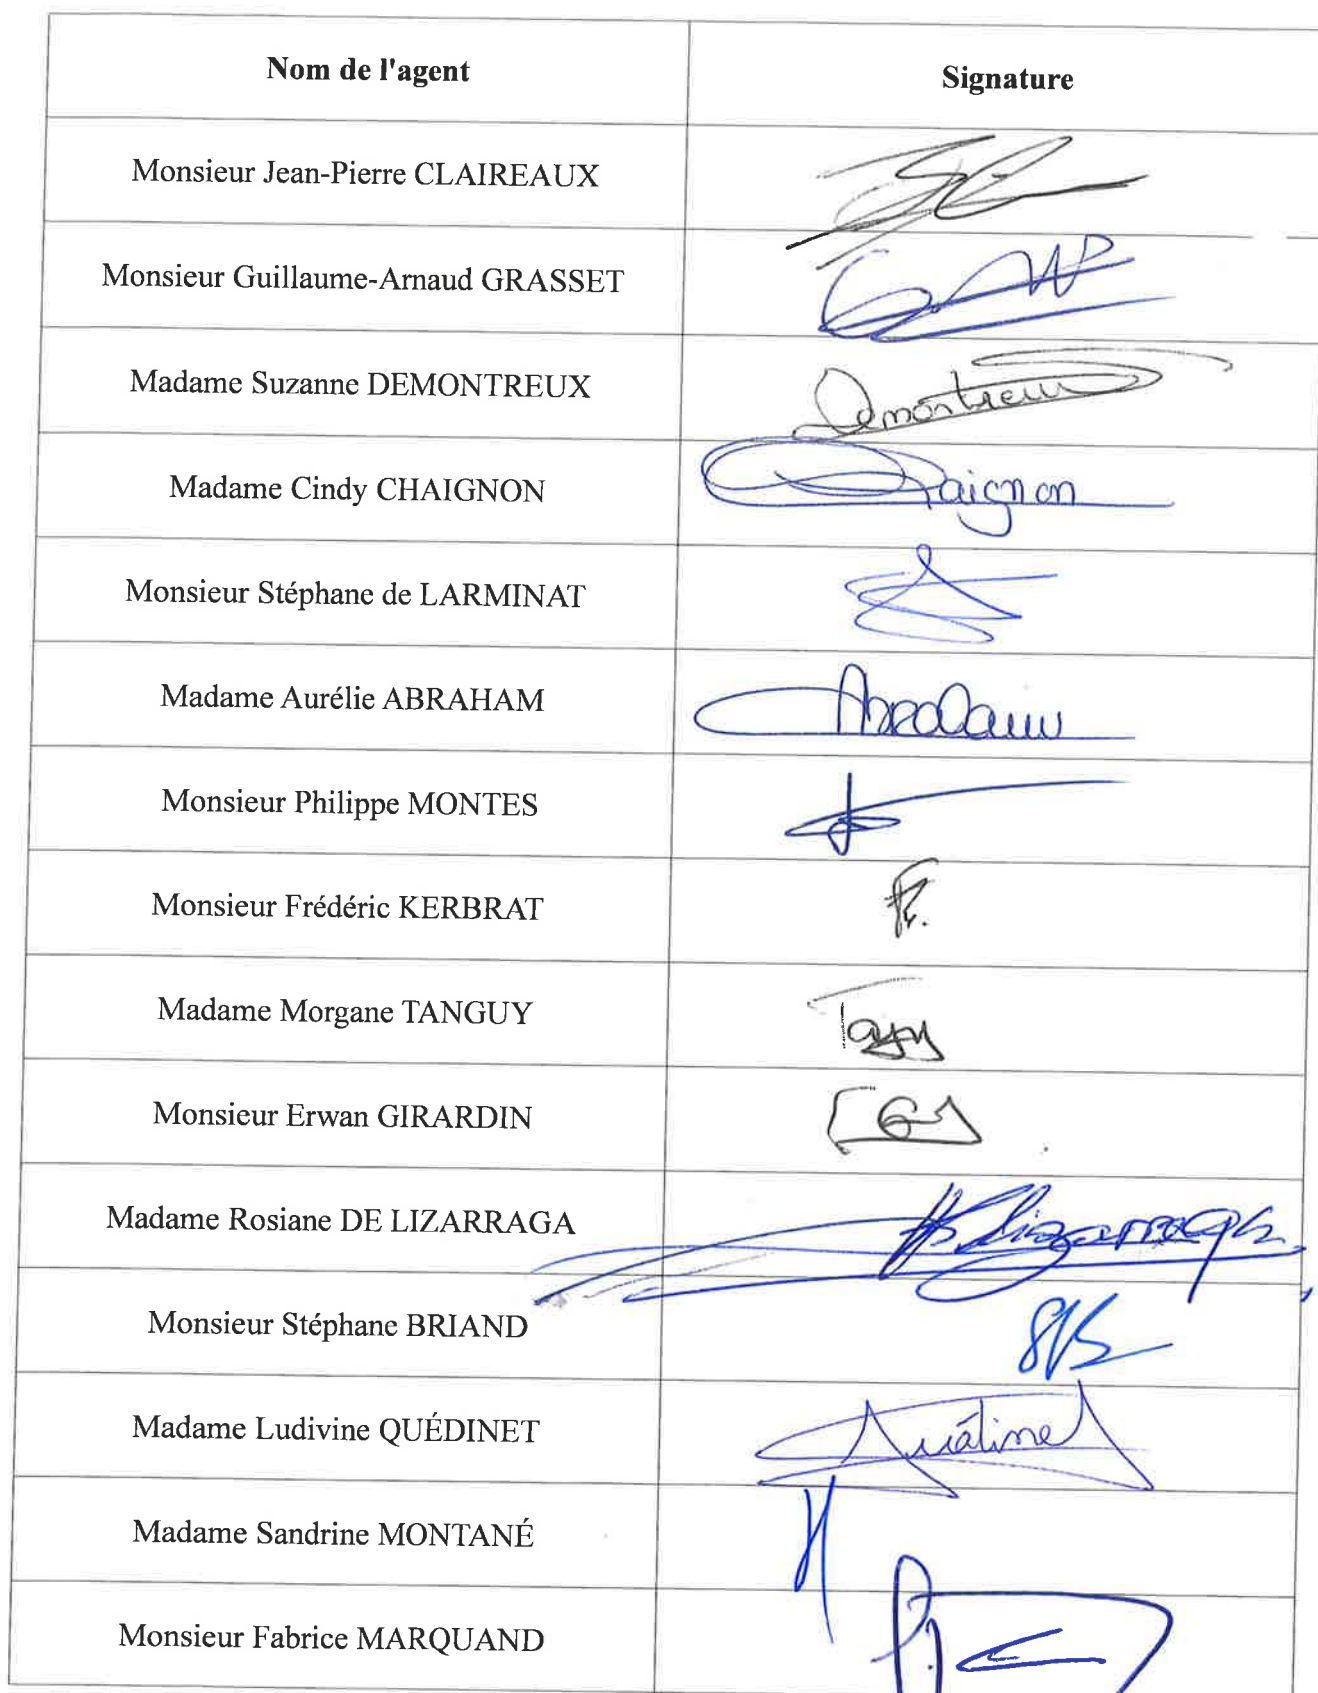 Nom de l'agent Signature
Monsieur Jean-Pierre CLAIREAUX
Monsieur Guillaume-Arnaud GRASSET
Madame Suzanne DEMONTREUX Demontreux
Madame Cindy CHAIGNON Chaignon
Monsieur Stéphane de LARMINAT
Madame Aurélie ABRAHAM Abraham
Monsieur Philippe MONTES
Monsieur Frédéric KERBRAT
Madame Morgane TANGUY
Monsieur Erwan GIRARDIN
Madame Rosiane DE LIZARRAGA
Monsieur Stéphane BRIAND
Madame Ludivine QUÉDINET
Madame Sandrine MONTANÉ
Monsieur Fabrice MARQUAND